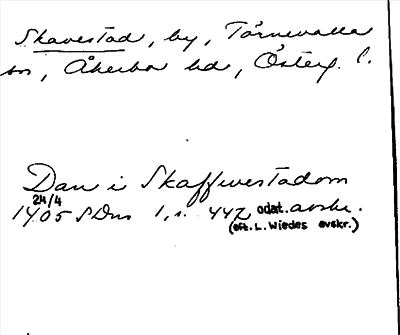 Skavestad, by, Törnevalla
sn, Åkerbo hd, Österg. l.
Dan i Skaffwestadom
24/4
1405 SDns 1, s. 442 odat. avskr.
(eft. L. Wiedes avskr.)